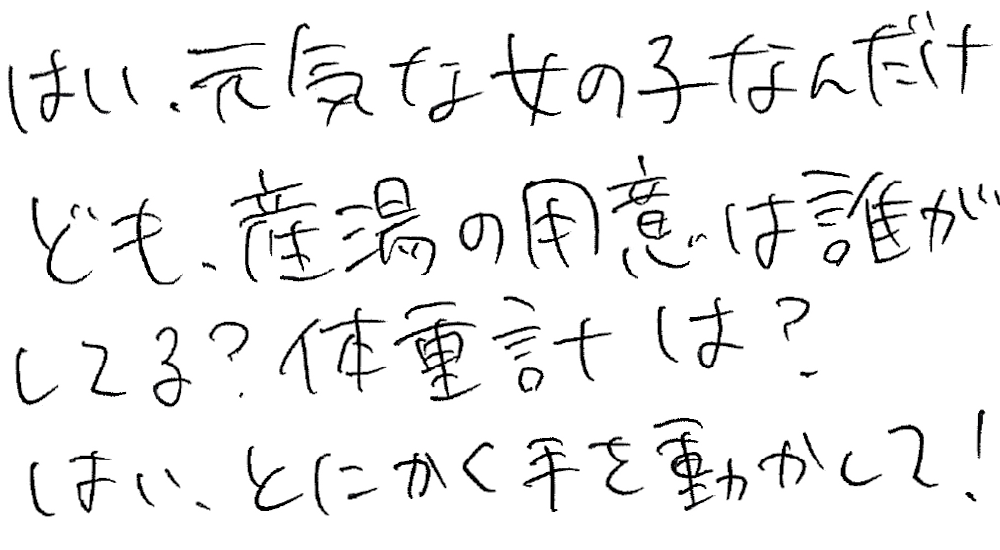 はい、元気な女の子なんだけ
ども、産湯の用意は誰が
してる?体重計は?
はい、とにかく手を動かして!